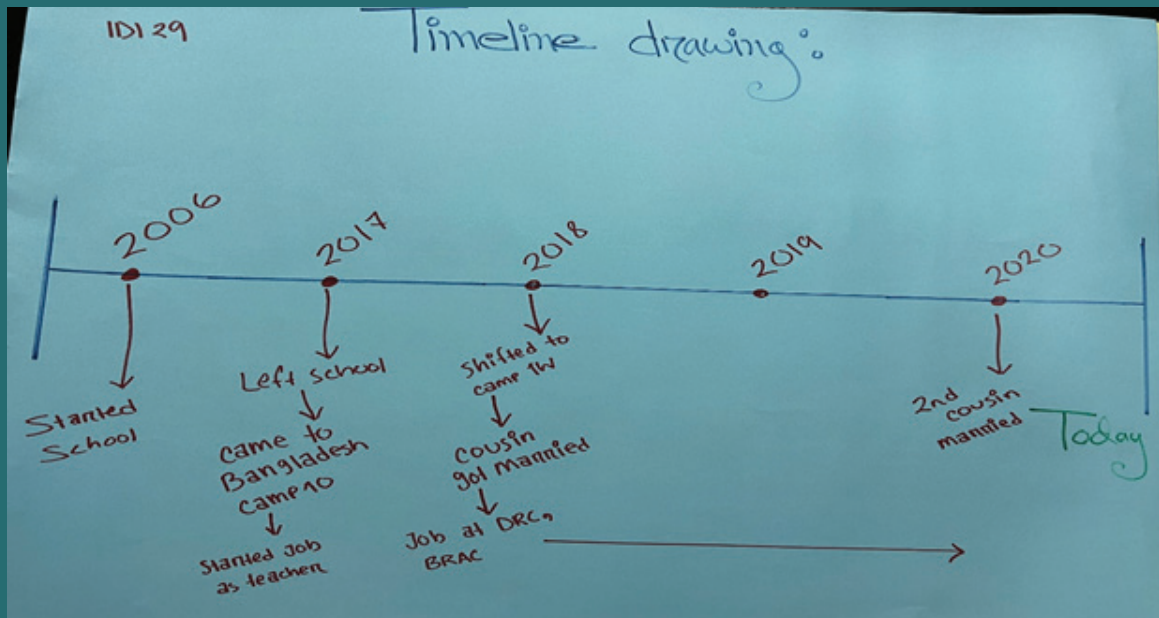 IDI 29
Timeline drawing:
2006
2017
2018
2019
2020
Started
School
Left school
came to
Bangladesh
Camp 10
Started Job
as teacher
Shifted to
camp 1W
cousin
got married
Job at DRC,
BRAC
2nd
cousin
married
Today